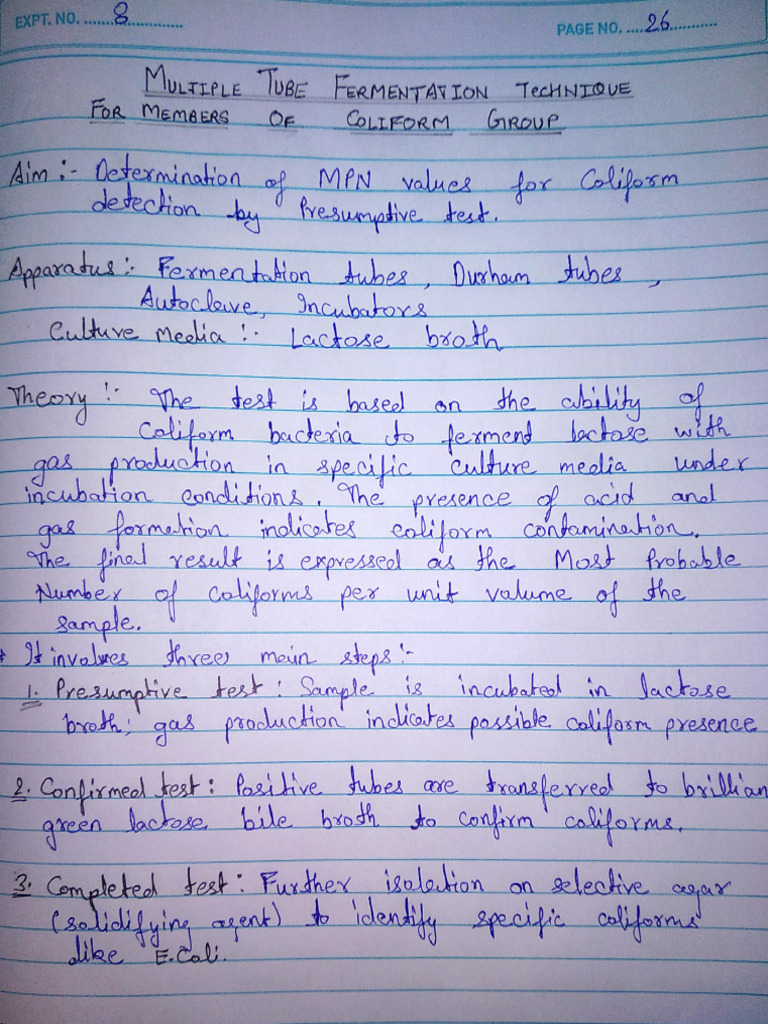 EXPT. NO. ........8..............
PAGE NO. ....26...........
MULTIPLE TUBE FERMENTATION TECHNIQUE
FOR MEMBERS OF COLIFORM GROUP
Aim :- Determination of MPN values for Coliform
detection by Presumptive test.
Apparatus :- Fermentation tubes, Durham tubes,
Autoclave, Incubators
Culture media :- Lactose broth
Theory :- The test is based on the ability of
Coliform bacteria to ferment lactose with
gas production in specific culture media under
incubation conditions. The presence of acid and
gas formation indicates coliform contamination.
The final result is expressed as the Most Probable
Number of coliforms per unit volume of the
sample.
* It involves three main steps :-
1. Presumptive test : Sample is incubated in lactose
broth; gas production indicates possible coliform presence
2. Confirmed test : Positive tubes are transferred to brillian
green lactose bile broth to confirm coliforms.
3. Completed test : Further isolation on selective agar
(solidifying agent) to identify specific coliforms
like E.Coli.